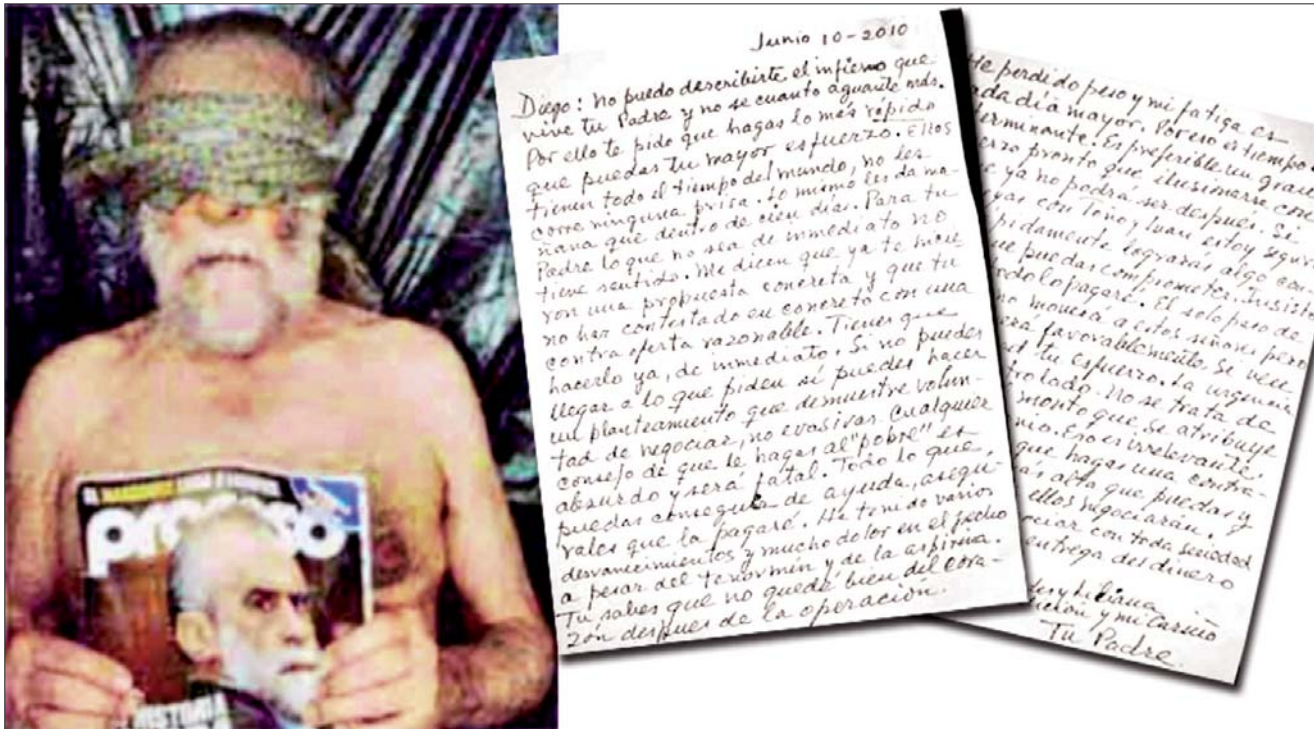 proceso
HISTORIA
Junio 10-2010
Diego: no puedo describirte el infierno que
vive tu Padre y no se cuanto aguante más.
Por ello te pido que hagas lo más rápido
que puedas tu mayor esfuerzo. Ellos
tienen todo el tiempo del mundo, no les
corre ninguna prisa. Lo mismo les da ma-
ñana que dentro de cien días. Para tu
Padre lo que no sea de inmediato no
tiene sentido. Me dicen que ya te hicie
ron una propuesta concreta y que tu
no has contestado en concreto con una
contra oferta razonable. Tienes que
hacerlo ya, de inmediato. Si no puedes
llegar a lo que piden sí puedes hacer
un planteamiento que demuestre volun-
tad de negociar, no evasivas. Cualquier
consejo de que le hagas al "pobre" es
absurdo y será fatal. Todo lo que
puedas conseguir de ayuda, asegu-
rales que la pagaré. He tenido varios
desvanecimientos y mucho dolor en el pecho
a pesar del tenormin y de la aspirina.
Tu sabes que no quedé bien del cora-
zón despues de la operación.
He perdido peso y mi fatiga es
cada día mayor. Por eso el tiempo
determinante. Es preferible un gran
pronto que ilusionarse con
ya no podrá ser después. Si
con Toño, Juan estoy seguro
rápidamente lograrás algo con
que puedas comprometer. Insisto
todo lo pagaré. El solo paso de
no moverá a estos señores pero
favorablemente si ven
tu esfuerzo. La urgencia
lado. No se trata de
monto que se atribuye
Eso es irrelevante.
que hagas una contra-
alta que puedas y
ellos negociarán.
con toda seriedad
entrega del dinero
y Liliana
y mi cariño
Tu Padre